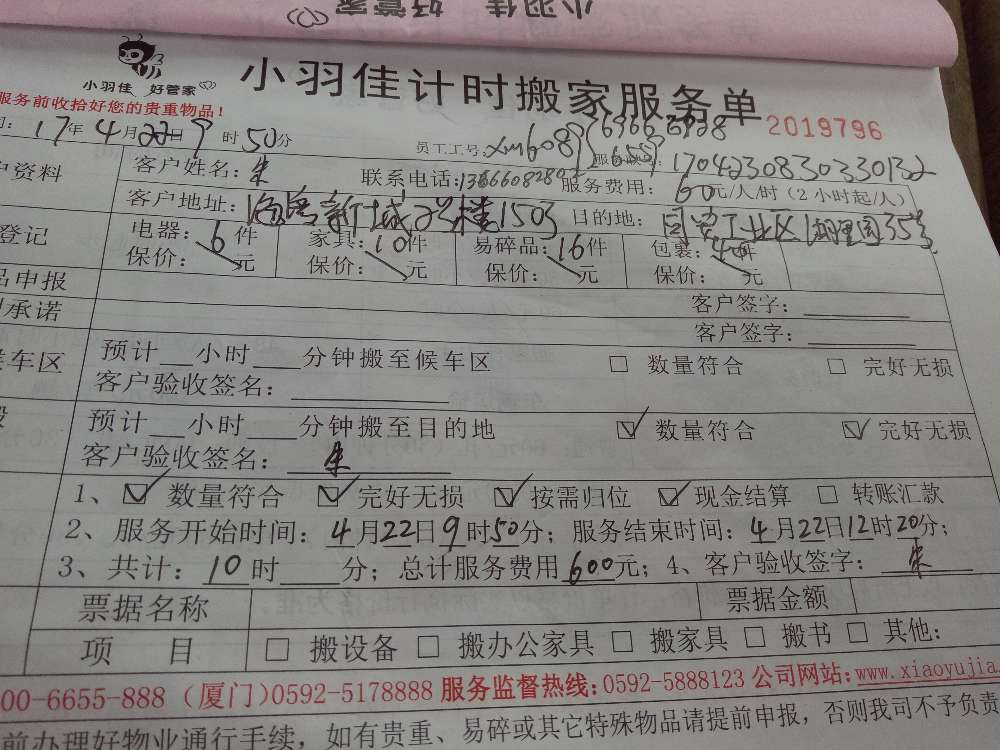 小羽佳 好管家
小羽佳 好管家
小羽佳计时搬家服务单
服务前收拾好您的贵重物品!
2019796
17年4月22日9时50分
员工工号:
客户姓名:朱
联系电话:
服务费用:60元/人/时(2小时起/人)
户资料
客户地址:海磨新城2号楼1503
目的地:同安工业区湖里园35号
登记
电器:6件
家具:10件
易碎品:16件
包裹:
保价: 元
保价: 元
保价: 元
保价: 元
品申报
客户签字:
承诺
客户签字:
候车区
预计 小时 分钟搬至候车区
□ 数量符合
□ 完好无损
客户验收签名:
预计 小时 分钟搬至目的地
☑ 数量符合
☑ 完好无损
客户验收签名:朱
1、☑ 数量符合 ☑ 完好无损 ☑ 按需归位 ☑ 现金结算 □ 转账汇款
2、服务开始时间:4月22日9时50分;服务结束时间:4月22日12时20分;
3、共计:10时 分;总计服务费用600元;4、客户验收签字:朱
票据名称
票据金额
项 目
□ 搬设备 □ 搬办公家具 □ 搬家具 □ 搬书 □ 其他:
00-6655-888(厦门)0592-5178888 服务监督热线:0592-5888123 公司网站:www.xiaoyujia
前办理好物业通行手续,如有贵重、易碎或其它特殊物品请提前申报,否则我司不予负责